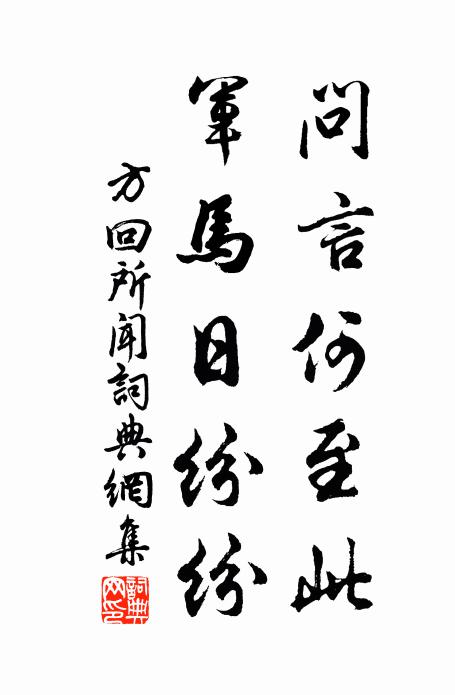 問言何至此
軍馬日紛紛
方回所聞詞典網集
詞典网印